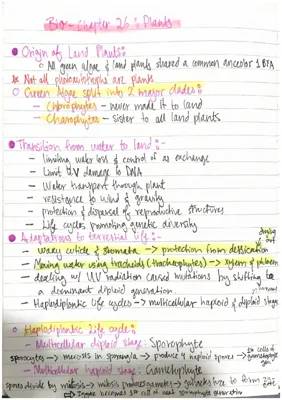 Bio - Chapter 26 : Plants
Origin of Land Plants:
All green algae & land plants shared a common ancestor 1 BYA
Not all photoautotrophs are plants
Green Algae split into 2 major clades:
- Chlorophytes - never made it to land
- Charophytes - sister to all land plants
Transition from water to land :-
- limiting water loss & control of gas exchange
- Limit UV damage to DNA
- Water transport through plant
- resistance to wind & gravity
- protection & dispersal of reproductive structures
- Life cycles promoting genetic diversity
Adaptations to terrestrial life:-
drying out
- waxy cuticle & stomata → protection from desiccation
- Moving water using tracheids (tracheophytes) → xylem & phloem
- dealing w/ UV radiation caused mutations by shifting to
a dominant diploid generation
- Haplodiplontic life cycles → multicellular haploid & diploid stage
Haplodiplontic Life cycle:
- Multicellular diploid stage: Sporophyte
sporocytes → meiosis in sporangia → produce 4 haploid spores → cells of gametophyte gen
- Multicellular haploid stage: Gametophyte
spores divide by mitosis → mitosis produces gametes → gametes fuse to form
zygote becomes 1st cell of next sporophyte generation